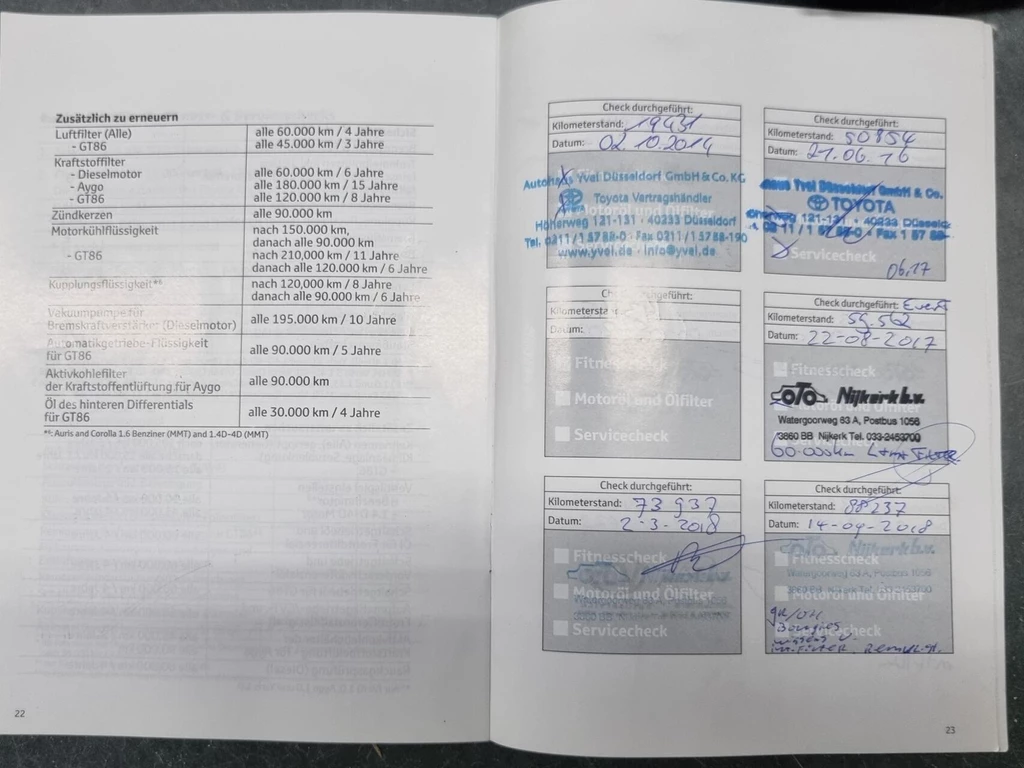 Zusätzlich zu erneuern
Luftfilter (Alle) alle 60.000 km / 4 Jahre
- GT86 alle 45.000 km / 3 Jahre
Kraftstoffilter
- Dieselmotor alle 60.000 km / 6 Jahre
- Aygo alle 180.000 km / 15 Jahre
- GT86 alle 120.000 km / 8 Jahre
Zündkerzen alle 90.000 km
Motorkühlflüssigkeit nach 150.000 km,
danach alle 90.000 km
- GT86 nach 210,000 km / 11 Jahre
danach alle 120.000 km / 6 Jahre
Kupplungsflüssigkeit*⁶ nach 120,000 km / 8 Jahre
danach alle 90.000 km / 6 Jahre
Vakuumpumpe für
Bremskraftverstärker (Dieselmotor) alle 195.000 km / 10 Jahre
Automatikgetriebe-Flüssigkeit
für GT86 alle 90.000 km / 5 Jahre
Aktivkohlefilter
der Kraftstoffentlüftung für Aygo alle 90.000 km
Öl des hinteren Differentials
für GT86 alle 30.000 km / 4 Jahre
*⁶: Auris and Corolla 1.6 Benziner (MMT) and 1.4D-4D (MMT)
22
Check durchgeführt:
Kilometerstand: 19431
Datum: 02.10.2014
Autohaus Yvel Düsseldorf GmbH & Co. KG
Toyota Vertragshändler
Höherweg 121-131 · 40233 Düsseldorf
Tel. 0211/15788-0 · Fax 0211/15788-190
www.yvel.de · info@yvel.de
Check durchgeführt:
Kilometerstand: 50854
Datum: 21.06.16
Yvel Düsseldorf GmbH & Co.
TOYOTA
121-131 · 40233
Servicecheck
06.17
Check durchgeführt:
Kilometerstand:
Datum:
Fitnesscheck
Motoröl und Ölfilter
Servicecheck
Check durchgeführt:
Kilometerstand: 59.562
Datum: 22-08-2017
Fitnesscheck
OTO Nijkerk b.v.
Motoröl und Ölfilter
Watergoorweg 63 A, Postbus 1056
3860 BB Nijkerk Tel. 033-2453700
60.000km
Check durchgeführt:
Kilometerstand: 73937
Datum: 2-3-2018
Fitnesscheck
Motoröl und Ölfilter
Servicecheck
Check durchgeführt:
Kilometerstand: 88237
Datum: 14-09-2018
OTO Nijkerk b.v.
Fitnesscheck
Watergoorweg 63 A, Postbus 1056
Motoröl und Ölfilter
Servicecheck
23